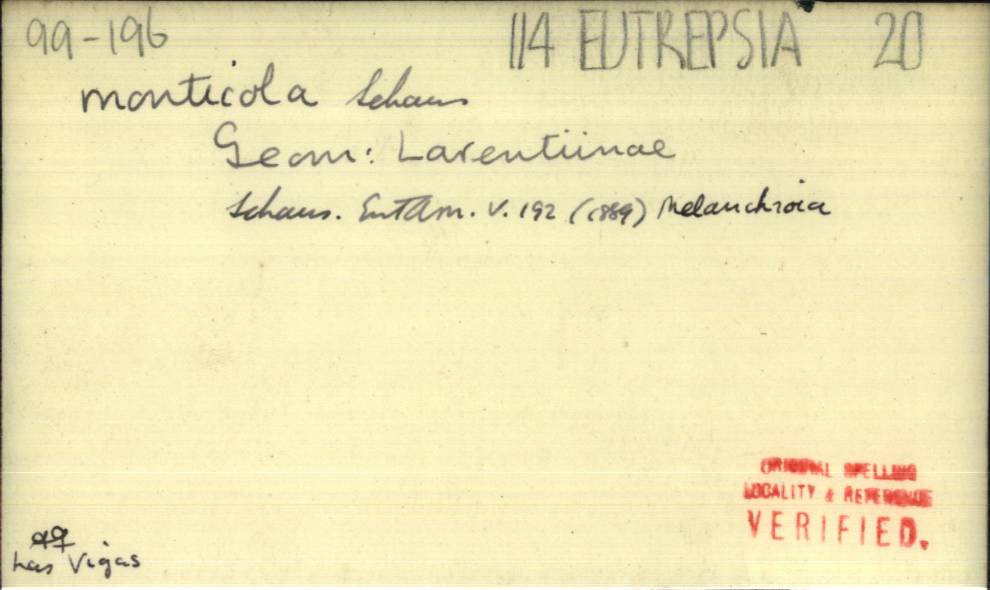 99-196 114 EUTREPSIA 20
monticola Schaus
Geom: Larentiinae
Schaus. Ent Am. V. 192 (1889) Melanchroia
ORIGINAL SPELLING
LOCALITY & REFERENCE
VERIFIED.
♂♀
Las Vigas